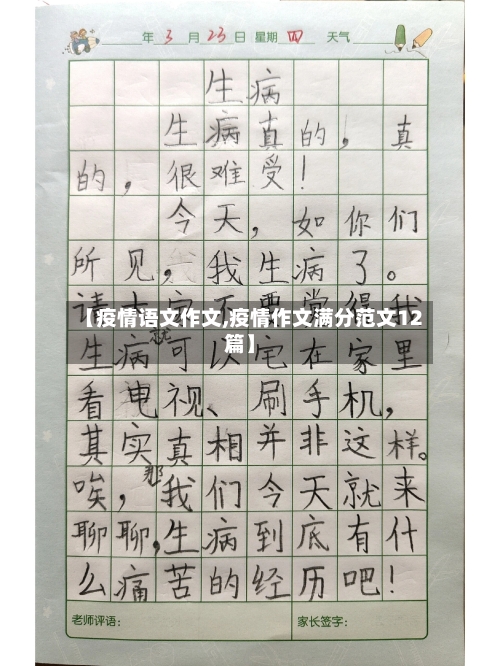 年 3 月 23 日 星期 四 天气
生病
生病真的，真
的，很难受！
今天，如你们
所见，我生病了。
【疫情语文作文,疫情作文满分范文12
篇】
生病就可以宅在家里
看电视、刷手机，
其实真相并非这样。
唉，那我们今天就来
聊聊，生病到底有什
么痛苦的经历吧！
老师评语： 家长签字：